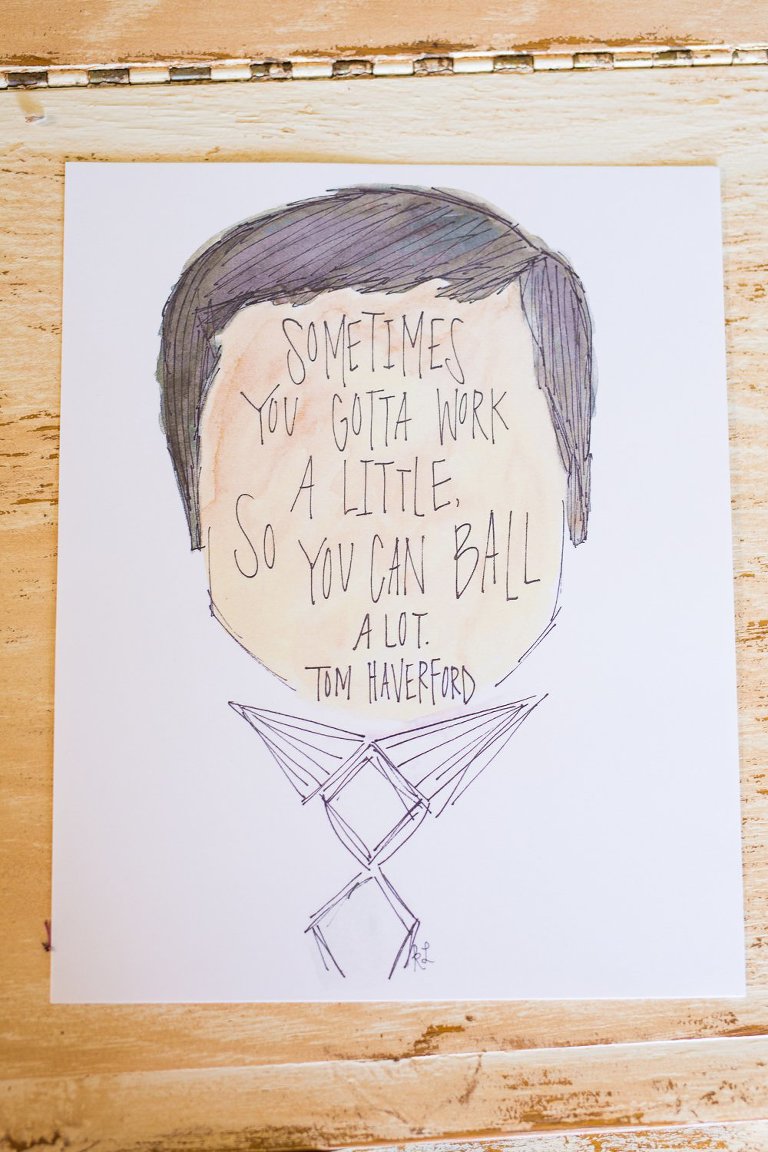 SOMETIMES
YOU GOTTA WORK
A LITTLE,
SO YOU CAN BALL
A LOT.
TOM HAVERFORD
RL